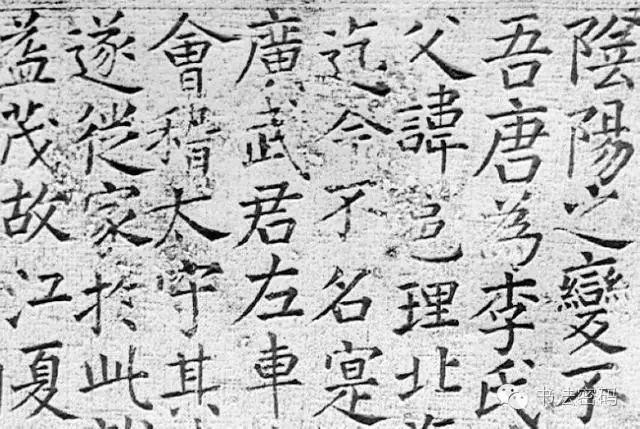 陰陽之變不
吾唐為李氏
父諱邕理北
迄今不名寔
廣武君左車
會稽太守其
遂從家於此
益茂故江夏
书法密码